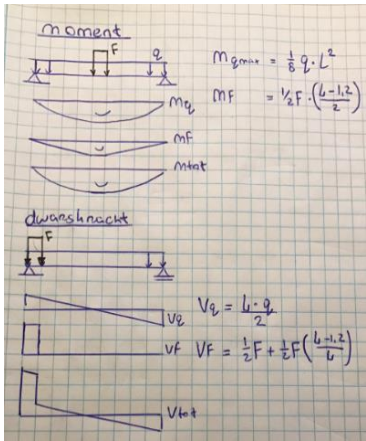 moment
F q
Mqmax = 1/8 q · L²
Mq
MF = 1/2 F · ((L-1,2)/2)
MF
Mtot
dwarskracht
F
Vq
Vq = L·q/2
Vf
VF = 1/2 F + 1/2 F ((L-1,2)/L)
Vtot